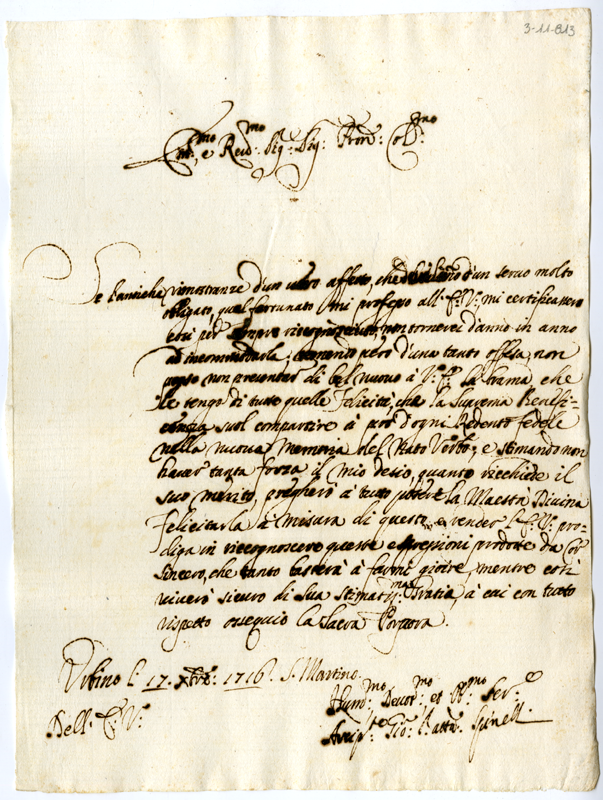 3-11-813
Em.mo e Rev.mo Sig.r Sig.r Pron.e Col.mo
Se l'antiche rimostranze d'un vero affetto, che d'un servo molto
obligato, qual fortunato mi professo all'E.V. mi certificassero
esser per sempre riconosciute, non tornerei d'anno in anno
ad incommodarla; temendo però d'una tanta offesa, non
posso non presentar di bel nuovo à V.E. la brama, che
tengo di tutte quelle Felicità, che la Suprema Benefi-
cenza suol compartire à prò d'ogni Redento fedele
nella nuova Memoria del Nato Verbo; e stimando non
haver tanta forza il mio desio, quanto richiede il
suo merito, pregherò à tutto potere la Maestà Divina
Felicitarla à misura di questo, e render l'E.V. pro-
diga in riccognoscere queste espressioni prodotte da cor
sincero, che tanto basterà à farmi gioire, mentre così
viverò sicuro di Sua Stimatis.ma Gratia, à cui con tutto
rispetto ossequio la Sacra Porpora.
Urbino li 17. Xbre. 1716. S. Martino.
Dell'E.V.
Hum.mo Devot.mo et Obl.mo Ser.e
Arcip.te Gio: Batta Spinelli